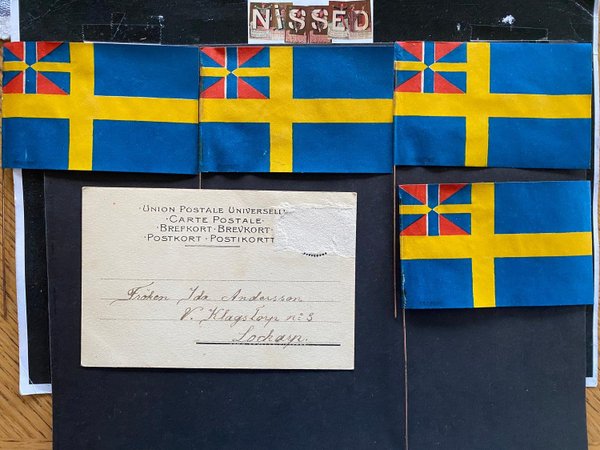 NISSED
·UNION POSTALE UNIVERSELL
·CARTE POSTALE·
·BREFKORT·BREVKORT·
·POSTKORT·POSTIKORTT
Fröken Ida Andersson
V. Klagstorp n:o 3
Lockarp.